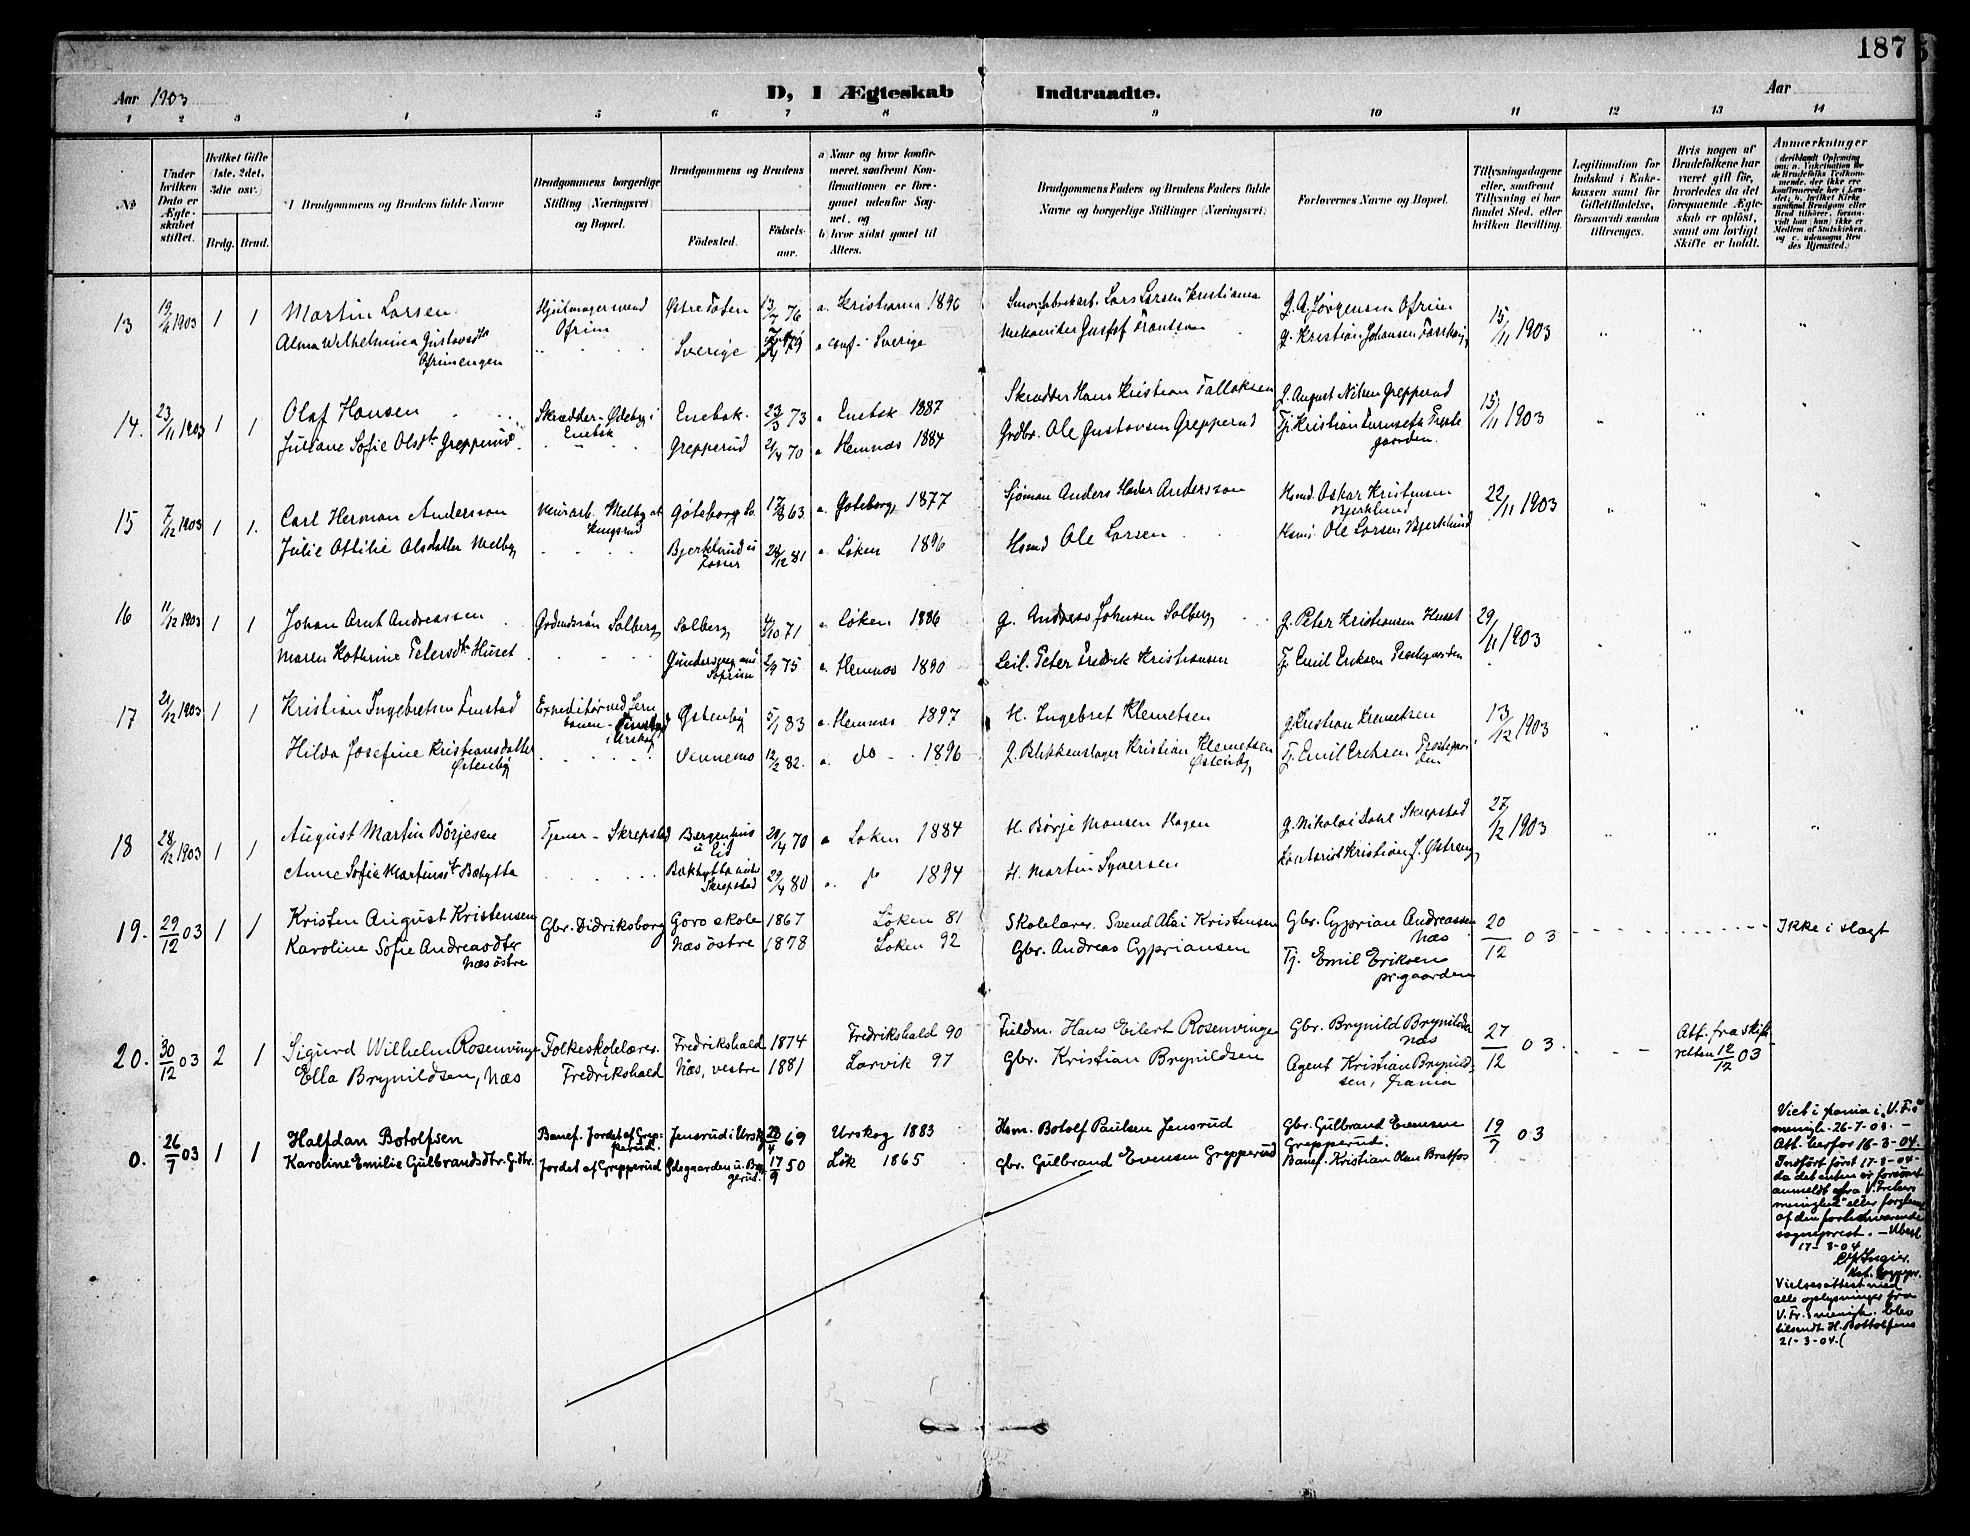 187
Aar 1903
D, I Ægteskab Indtraadte.
Aar
1 2 3 4 5 6 7 8 9 10 11 12 13 14
No
Under hvilken Dato er Ægteskabet stiftet.
Hvilket Gifte (1ste, 2det, 3die osv.)
Brdg. Brud.
Brudgommens og Brudens fulde Navne
Brudgommens borgerlige Stilling (Næringsvei) og Bopæl.
Brudgommens og Brudens
Fødested.
Fødselsaar.
a) Naar og hvor konfirmeret, saafremt Konfirmationen er foregaaet udenfor Sognet, og
b) hvor sidst gaaet til Alters.
Brudgommens Faders og Brudens Faders fulde Navne og borgerlige Stillinger (Næringsvei)
Forlovernes Navne og Bopæl.
Tillysningsdagene eller, saafremt Tillysning ei har fundet Sted, efter hvilken Bevilling.
Legitimation for Indskud i Enkekassen samt for Giftetilladelse, forsaavidt saadan tiltrænges.
Hvis nogen af Brudefolkene har været gift før, hvorledes da det foregaaende Ægteskab er opløst, samt om lovligt Skifte er holdt.
Anmærkninger
13 19/11 1903 1 1 Martin Larsen Hjulmagersvend Ofrim Østre Toten 13/7 76 a. Kristiania 1890 Lars Larsen Kristiania G. A. Jørgensen Ofrim 15/11 1903
Alma Wilhelmina Gustavsdtr Ofrimengen Sverige 79 a conf. i Sverige Mekaniker Gustaf Frantsen G. Kristian Johansen
14. 23/11 1903 1 1 Olaf Hansen Skrædder - Ødeby i Enebak Enebak. 23/3 73 a Enebk 1887 Skrædder Hans Kristian Tallaksen G. August Nilsen Grepperud 15/11 1903
Juliane Sofie Olsdtr Grepperud Grepperud 21/4 70 a Hemnæs 1884 Grdbr. Ole Gustavsen Grepperud Tj. Kristian Turnseth Præstegaarden.
15 7/12 1903 1 1. Carl Herman Andersson Melby Göteborg 17/8 63 a. Gøteborg 1877 Sjøman Anders Andersson Hsmd. Oskar Kristensen Bjerklund 22/11 1903
Julie Otilie Olsdatter Melby Bjerklund u Fosser 28/12 81 a. Løken 1896 Hsmd Ole Larsen Ole Larsen Bjerklund
16 11/12 1903 1 1 Johan Arnt Andreassen Solberg Solberg 4/10 71 a Løken 1886 G. Andreas Johnsen Solberg G. Peter Kristiansen Huset 29/11 1903
Maren Kathrine Petersdtr Huset 2/9 75 a. Hemnæs 1890 Leil. Peter Fredrik Kristiansen Tj. Emil Eriksen Præstegarden
17 21/12 1903 1 1 Kristian Ingebretsen Finstad Expeditør ved Jernbanen - Finstad i Urskog Østenby 5/1 83 a. Hemnæs 1897 H. Ingebret Klemetsen G. Kristian Klemetsen 13/12 1903
Hilda Josefine Kristiansdatter Østenby Vennemo 12/2 82. a. do 1896 G. Blikkenslager Kristian Klemetsen Østenby Tj. Emil Eriksen Præstegaarden
18 28/12 1903 1 1 August Martin Børjesen Tjener - Skrepstad Bergenhus u Eid 29/4 70 a Løken 1884 H. Børje Monsen Hagen G. Nikolai Dahl Skrepstad 27/12 1903
Anne Sofie Martinsdtr Bakhytta Bakhytta under Skrepstad 29/4 80 a. do 1894 H. Martin Syversen Kristian J. Østreng
19. 29/12 03 1 1 Kristen August Kristensen Gbr. Didriksborg Goro skole 1867 Løken 81 Skolelærer. Svend Kristensen Gbr. Cyprian Andreassen Næs 20/12 03 Ikke i slægt
Karoline Sofie Andreasdtr Næs østre Næs østre 1878 Løken 92 Gbr. Andreas Cypriansen Tj. Emil Eriksen pr.gaarden
20. 30/12 03 2 1 Sigurd Wilhelm Rosenvinge Folkeskolelærer. Fredrikshald Fredrikshald 1874 Fredrikshald 90 Fuldm. Hans Eilert Rosenvinge Gbr. Brynild Brynildsen Næs 27/12 03 Att. fra skifteretten 12/12 03
Ella Brynildsen, Næs Næs, vestre 1881 Larvik 97 Gbr. Kristian Brynildsen Agent Kristian Brynildsen, Krania
0. 26/7 03 1 1 Halfdan Botolfsen Banef. Jordet af Grepperud. Jensrud i Urskg 23/4 69 Urskog 1883 Hsm. Botolf Paulsen Jensrud Gbr. Gulbrand Evensen Grepperud. 19/7 03
Karoline Emilie Gulbrandsdtr. Jordet af Grepperud Ødegaarden u. 17/9 50 Løk 1865 Gbr. Gulbrand Evensen Grepperud Banef. Kristian Olsen Bratfos
Viet i Krania i "V. Fr.s menigh. 26-7-03. –
Att. herfor 16-3-04.
Indført først 17-3-04
da det enten er forsømt
anmeldt fra V. Frelsers
menighet eller forglemt
af den forhenværende
sogneprest. –
17-3-04
Vielsesattest med
alle oplysninger fra
V. Fr.s menigh. blev
tilsendt H. Bottolfsens
21-3-04.